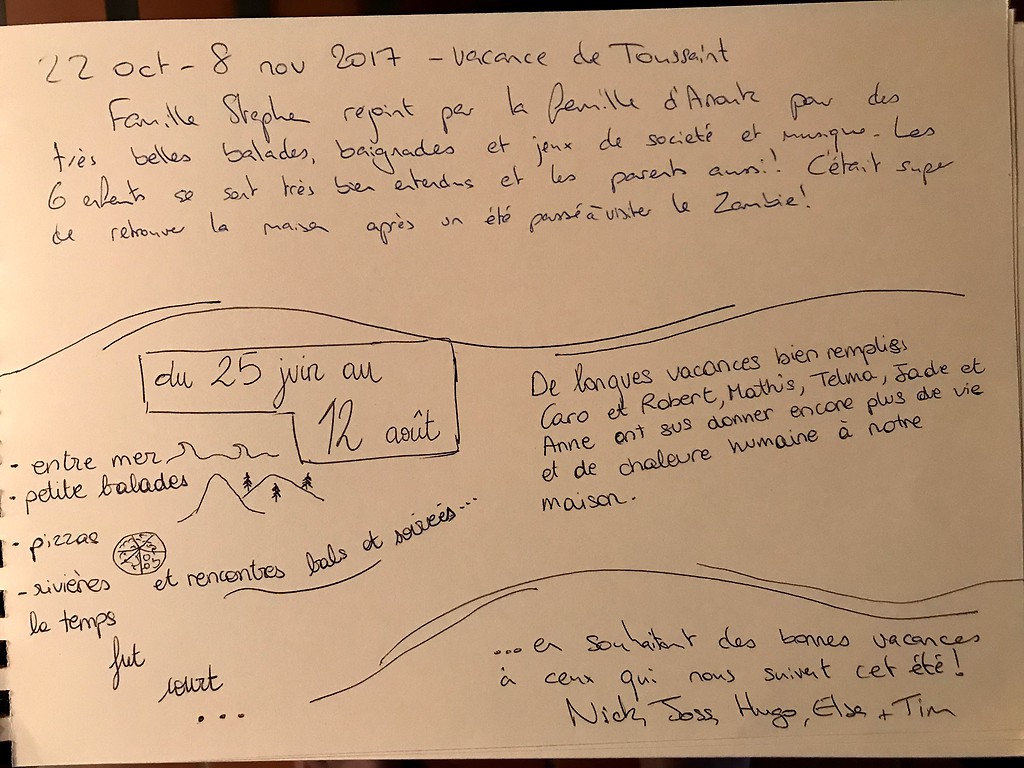 22 oct - 8 nov 2017 - vacance de Toussaint
Famille Stephen rejoint par la famille d'Anouk pour des
très belles balades, baignades et jeux de societé et musique. Les
6 enfants se sont très bien entendus et les parents aussi! C'était super
de retrouver la maison après un été passé à visiter le Zambie!
du 25 juin au
12 août
- entre mer
- petite balades
- pizzas
- rivières
et rencontres bals et soirées...
le temps
fut
court
...
De longues vacances bien remplies
Caro et Robert, Mathis, Telma, Jade et
Anne ont sus donner encore plus de vie
et de chaleure humaine à notre
maison.
... en souhaitant des bonnes vacances
à ceux qui nous suivent cet été!
Nick, Joss, Hugo, Elsa + Tim